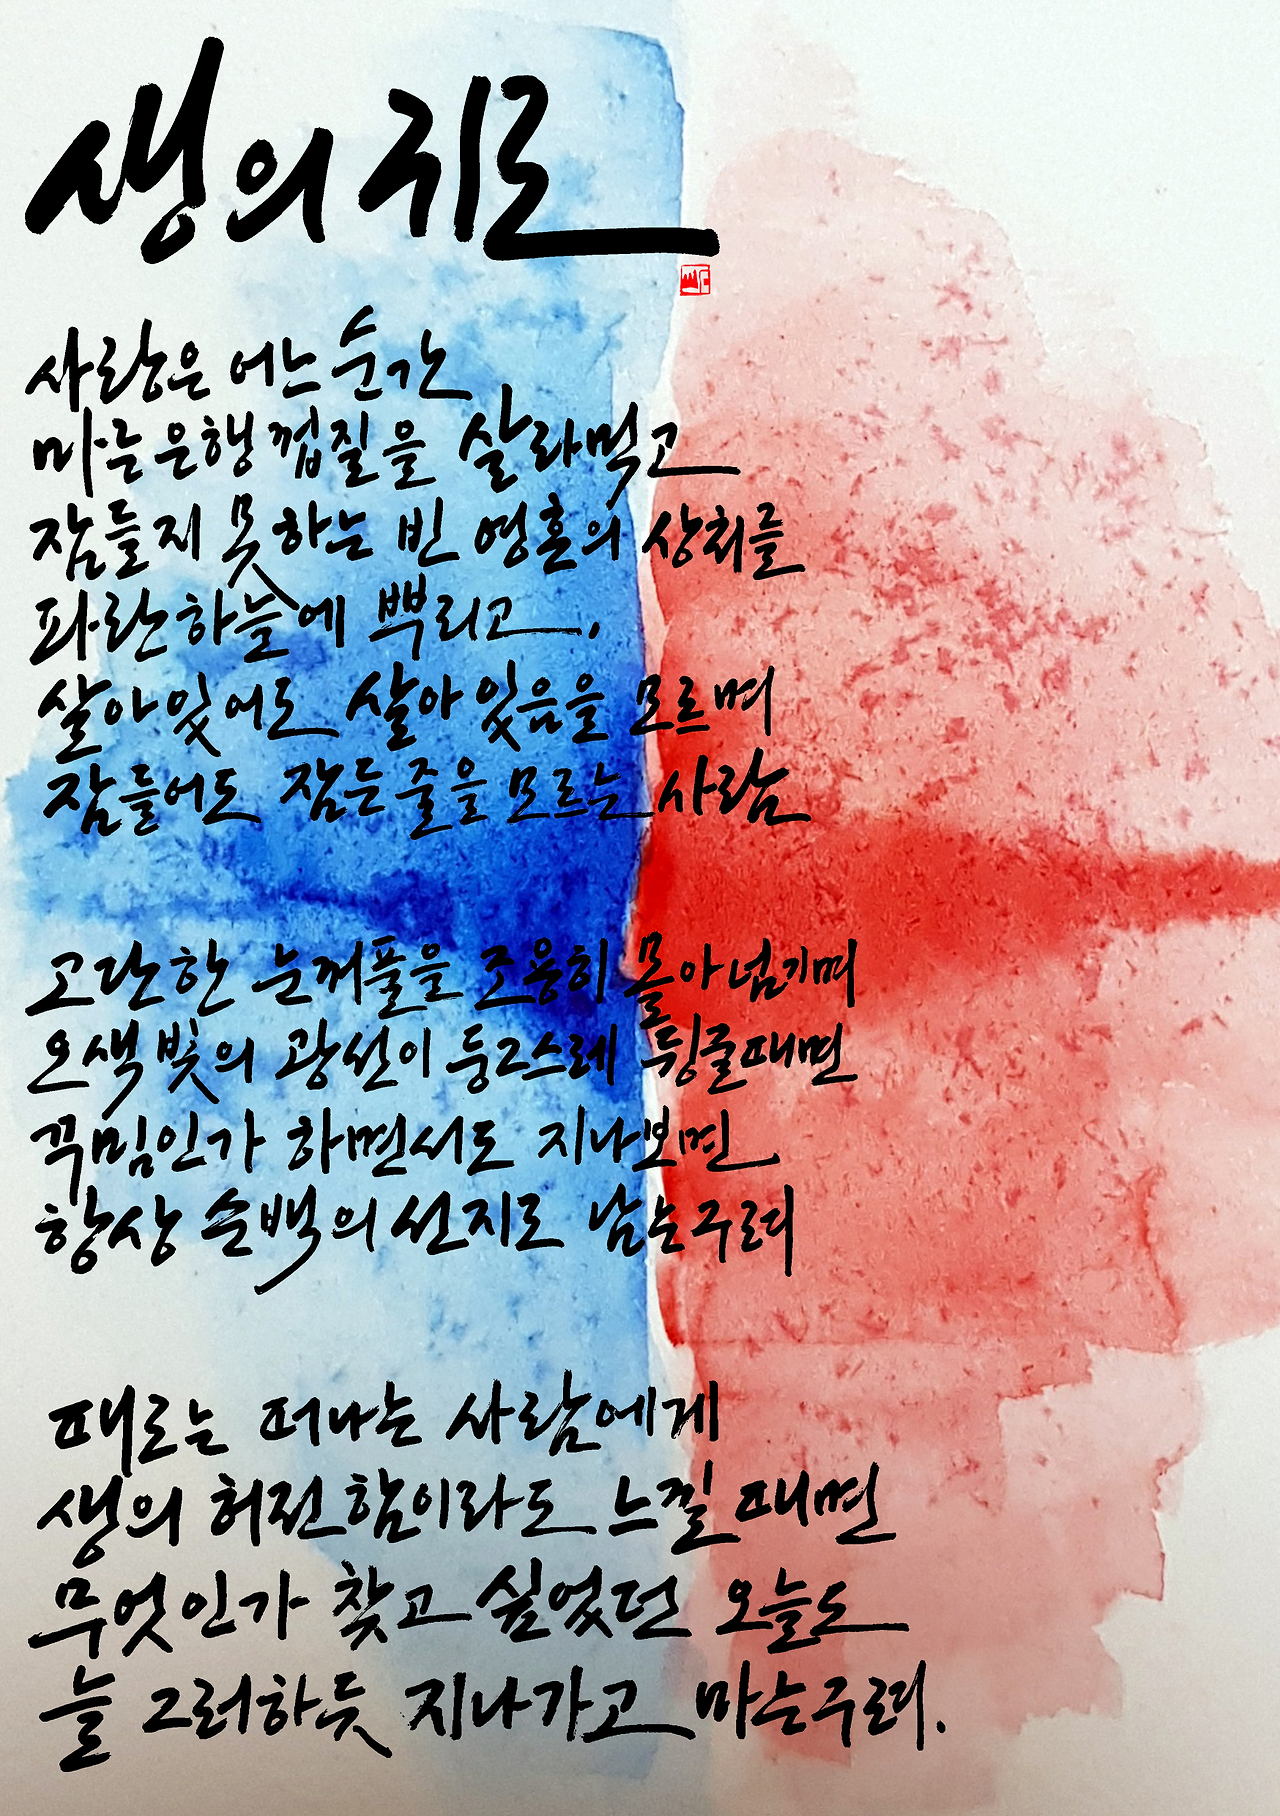 생의 귀로
사랑은 어느 순간
마른 은행 껍질을 살라먹고
잠들지 못하는 빈 영혼의 상취를
파란 하늘에 뿌리고,
살아있어도 살아있음을 모르며
잠들어도 잠든 줄을 모르는 사람
고단한 눈꺼풀을 조용히 몰아 넘기며
오색 빛의 광선이 둥그스레 뒹굴때면
꾸밈인가 하면서도 지나보면
항상 순백의 선지로 남는구려
때로는 떠나는 사람에게
생의 허전함이라도 느낄 때면
무엇인가 찾고 싶었던 오늘도
늘 그러하듯 지나가고 마는구려.